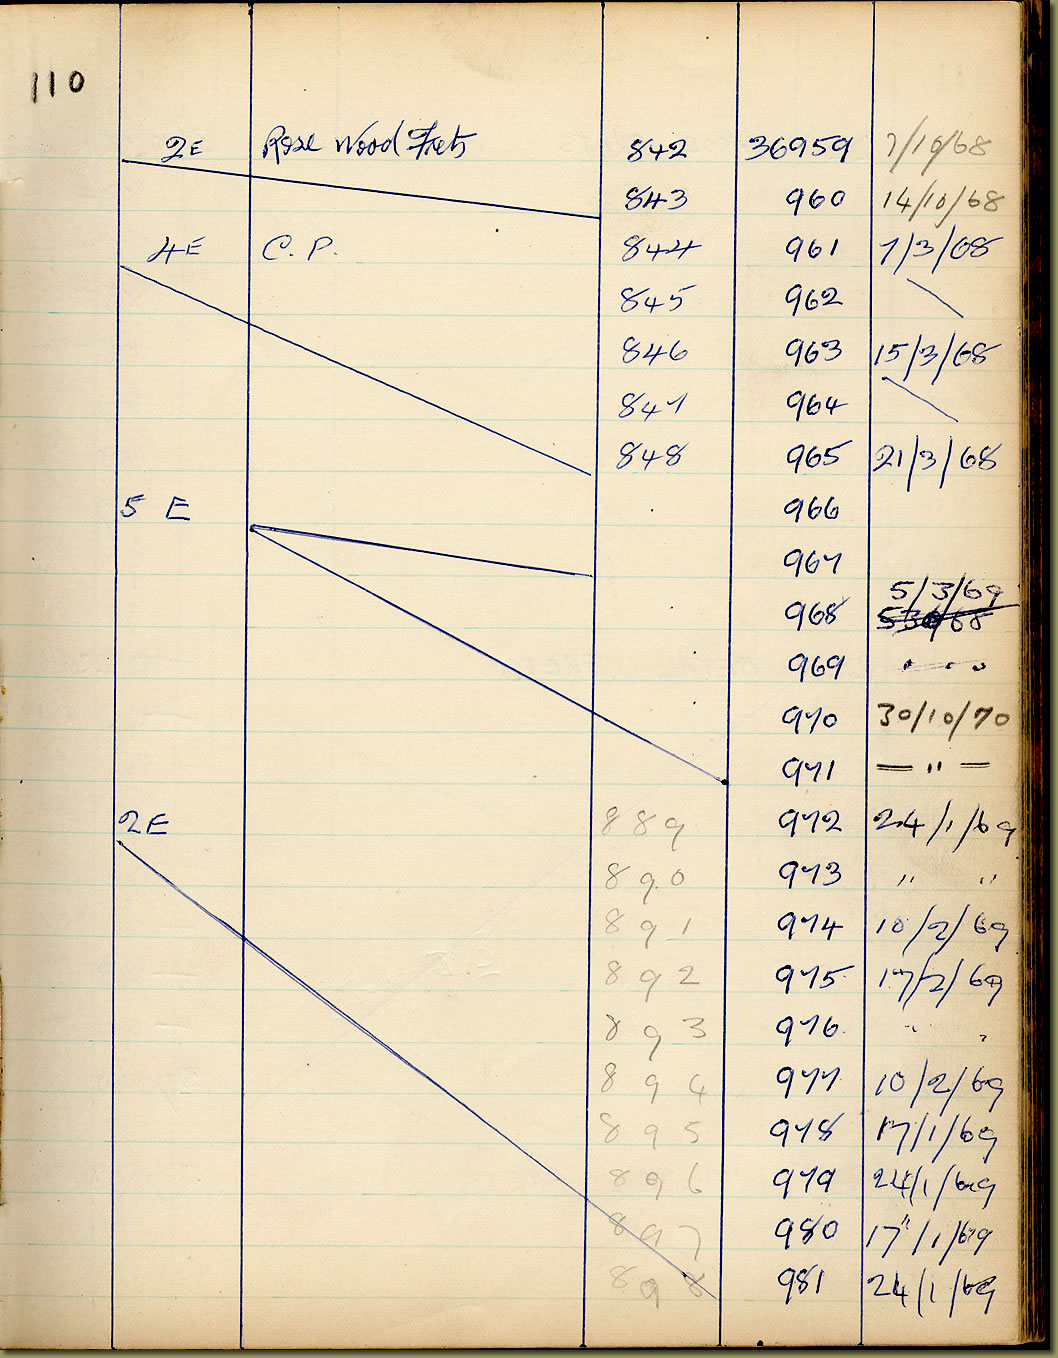 110
2E Rose Wood Frets 842 36959 7/10/68
843 960 14/10/68
4E C.P. 844 961 7/3/68
845 962 \
846 963 15/3/68
847 964 \
848 965 21/3/68
5 E 966
967
5/3/69
968
969 " — "
970 30/10/70
971 — " —
2E 889 972 24/1/69
890 973 " "
891 974 10/2/69
892 975 17/2/69
893 976 " "
894 977 10/2/69
895 978 17/1/69
896 979 24/1/69
897 980 17"/1/69
898 981 24/1/69